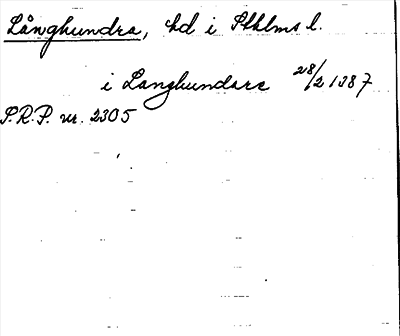 Långhundra, hd i Sthlms l.
i Langhundare 28/2 1387
S.R.P. nr. 2305